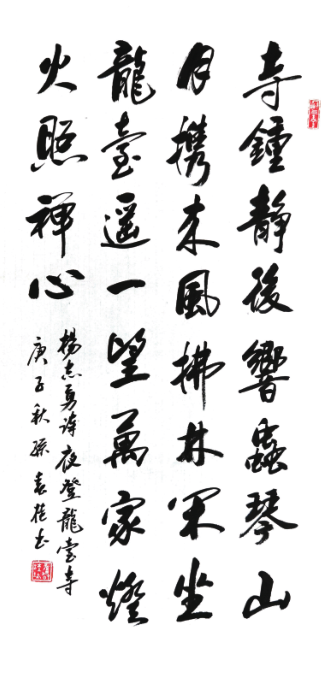 寺鐘靜後響蟲琴山
月攜來風拂林閑坐
龍臺遥一望萬家燈
火照禪心
楊志勇詩夜登龍臺寺
庚子秋孫吉桂书